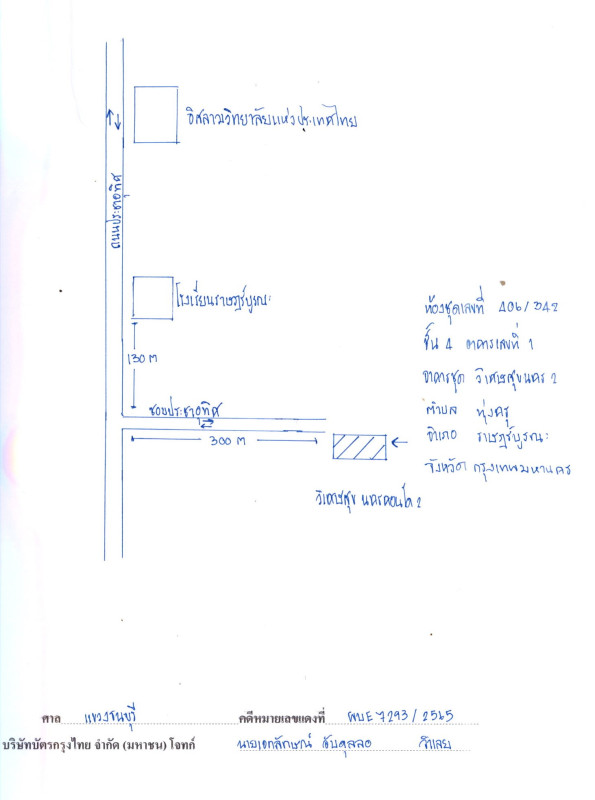 อิสลามวิทยาลัยแห่งประเทศไทย
ถนนประชาอุทิศ
โรงเรียนราษฎร์บูรณะ
130 M
ซอยประชาอุทิศ
300 M
ห้องชุดเลขที่ 406/342
ชั้น 4 อาคารเลขที่ 1
อาคารชุด วิเศษสุขนคร 2
ตำบล ทุ่งครุ
อำเภอ ราษฎร์บูรณะ
จังหวัด กรุงเทพมหานคร
วิเศษสุข นครคอนโด 2
ศาล แขวงธนบุรี คดีหมายเลขแดงที่ ผบE 7293/2565
บริษัทบัตรกรุงไทย จำกัด (มหาชน) โจทก์ นายเอกลักษณ์ จำเลย